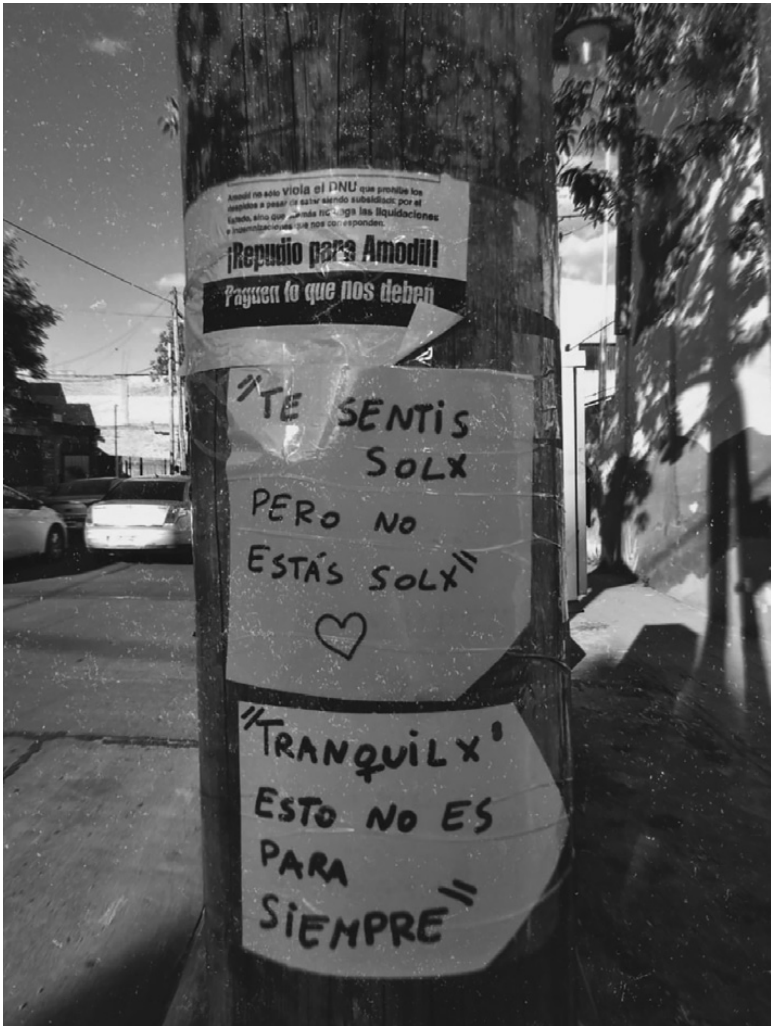 Amodil no sólo viola el DNU que prohibe los
despidos a pesar de estar siendo subsidiada por el
Estado, sino que además no paga las liquidaciones
e indemnizaciones que nos corresponden.
¡Repudio para Amodil!
Paguen lo que nos deben
"TE SENTIS
SOLX
PERO NO
ESTÁS SOLX"
"TRANQUILX"
ESTO NO ES
PARA
SIEMPRE"